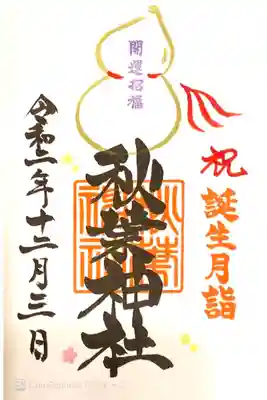 開運招福
祝
誕生月詣
秋葉神社
令和二年十二月三日